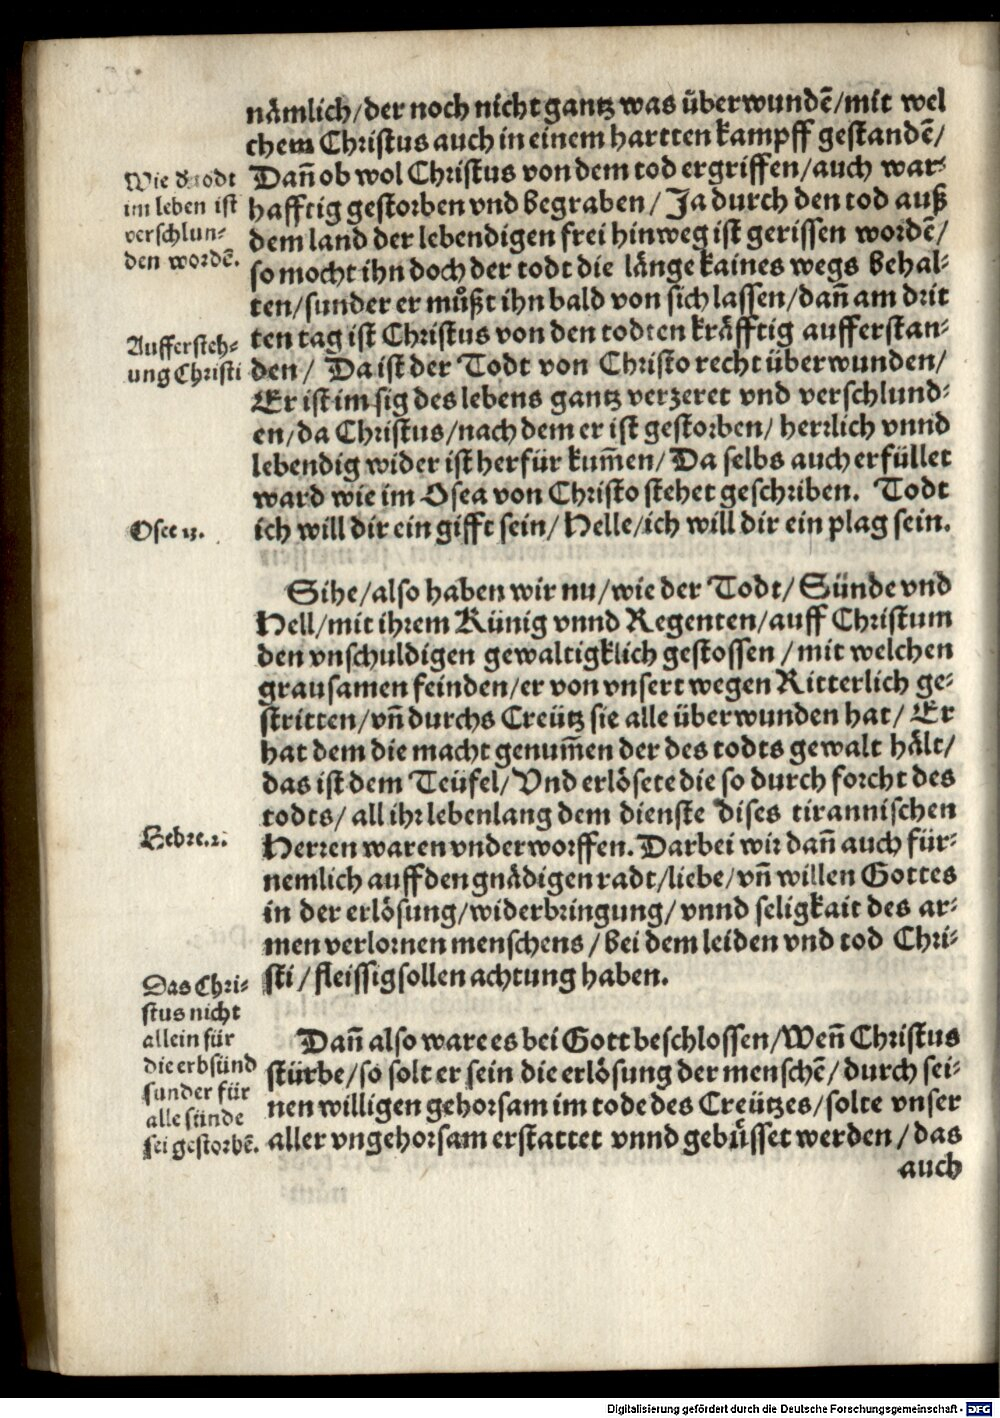 nämlich/der noch nicht gantz was überwundẽ/mit wel
chem Christus auch in einem hartten kampff gestandẽ/
Dañ ob wol Christus von dem tod ergriffen/auch war⸗
hafftig gestorben vnd begraben/ Ja durch den tod auß
dem land der lebendigen frei hinweg ist gerissen wordẽ/
so mocht ihn doch der todt die länge kaines wegs behal⸗
ten/sunder er můßt ihn bald von sich lassen/dañ am drit
ten tag ist Christus von den todten kräfftig aufferstan⸗
den/ Da ist der Todt von Christo recht überwunden/
Er ist im sig des lebens gantz verzeret vnd verschlund⸗
en/da Christus/nach dem er ist gestorben/ herrlich vnnd
lebendig wider ist herfür kum̃en/ Da selbs auch erfüllet
ward wie im Osea von Christo stehet geschriben. Todt
ich will dir ein gifft sein/Helle/ich will dir ein plag sein.
Wie d̕ todt
im leben ist
verschlun⸗
den wordẽ.
Aufferſteh⸗
ung Christi
Osee 13.
Sihe/also haben wir nu/wie der Todt/ Sünde vnd
Hell/mit ihrem Künig vnnd Regenten/auff Christum
den vnschuldigen gewaltigklich gestossen /mit welchen
grausamen feinden/er von vnsert wegen Ritterlich ge⸗
stritten/vñ durchs Creütz sie alle überwunden hat/ Er
hat dem die macht genum̃en der des todts gewalt hält/
das ist dem Teüfel/Vnd erlösete die so durch forcht des
todts/ all ihr lebenlang dem dienste dises tirannischen
Herren waren vnderworffen. Darbei wir dañ auch für⸗
nemlich auff den gnädigen radt/liebe/vñ willen Gottes
in der erlösung/widerbringung/vnnd seligkait des ar⸗
men verlornen menschens /bei dem leiden vnd tod Chri⸗
sti/fleissig sollen achtung haben.
Hebre.2.
Dañ also ware es bei Gott beschlossen/Weñ Christus
stürbe/so solt er sein die erlösung der menschẽ/durch sei⸗
nen willigen gehorsam im tode des Creützes/solte vnser
aller vngehorsam erstattet vnnd gebüsset werden /das
auch
Das Chri⸗
stus nicht
allein für
die erbsünd
sunder für
alle sünde
sei gestorbẽ.
Digitalisierung gefördert durch die Deutsche Forschungsgemeinschaft - DFG